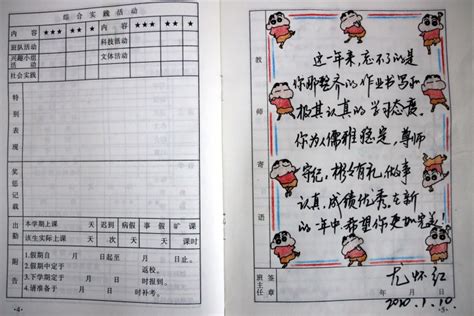 综合实践活动
内容 ★★★ ★★ ★ 内容 ★★★ ★★ ★
班队活动 科技活动
兴趣小组活动 文体活动
社会实践
特别表现
奖惩记载
出勤
本学期上课 天 迟到 病假 事假 旷课
该生实际上课 天 次 天 天 课时
附告
1.假期自 月 日起至 月 日止。
2.假期中定于 月 日返校。
3.下学期定于 月 日报到。
4.请准备于 月 日时补考。
·4·
教师寄语
这一年来,忘不了的是
你那整齐的作业书写和
极其认真的学习态度。
你为人儒雅稳定,尊师
守纪,彬彬有礼,做事
认真,成绩优秀。在新
的一年中希望你更加完美!
班主任签章
尤怀红
年 月 日
2010.1.10.
·5·